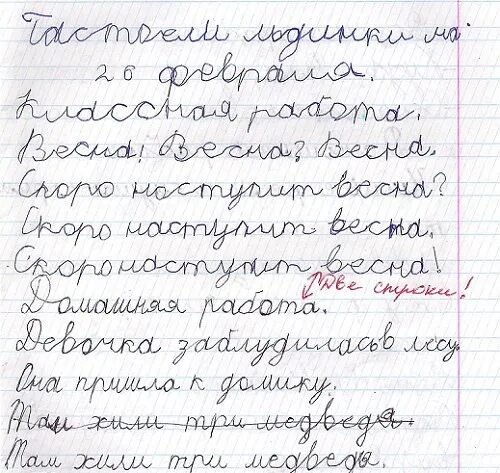 Тастоели льдинки на
26 февраля.
Классная работа.
Весна! Весна? Весна.
Скоро наступит весна?
Скоро наступит весна.
Скоро наступит весна!
Две строки!
Домашняя работа.
Девочка заблудилась в лесу.
Она пришла к домику.
Там жили три медведя.
Там жили три медведя.